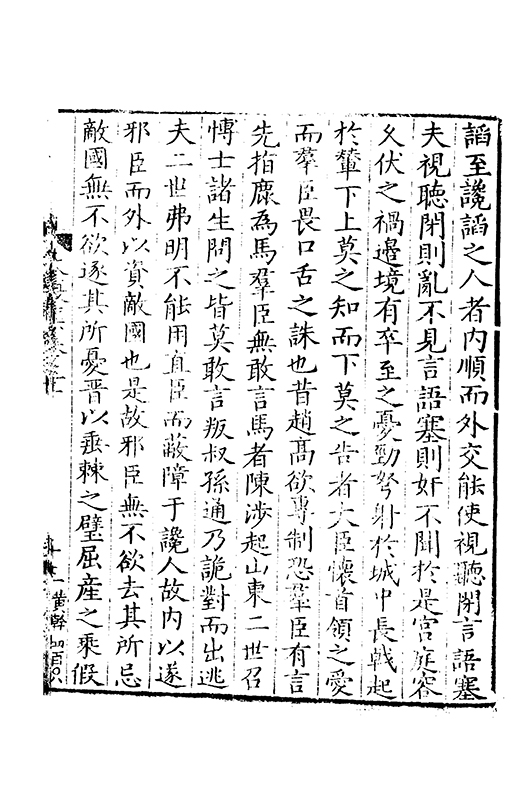 謟至讒謟之人者内順而外交能使視聽閉言語塞
夫視聽閉則亂不見言語塞則奸不聞於是宫庭容
久伏之禍邉境有卒至之憂勁弩射於城中長戟起
於輦下上莫之知而下莫之告者大臣懷首領之愛
而羣臣畏口舌之誅也昔趙髙欲専制恐羣臣有言
先指鹿為馬羣臣無敢言馬者陳渉起山東二世召
愽士諸生問之皆莫敢言叛叔孫通乃詭對而出逃
夫二世弗明不能用直臣而蔽障于讒人故内以遂
邪臣而外以資敵國也是故邪臣無不欲去其所忌
敵國無不欲逐其所憂晋以垂棘之璧屈産之乘假
十一
黄幹